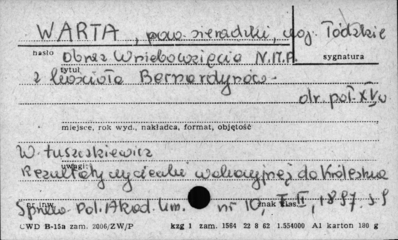 WARTA, pow. sieradzki, woj. Łódzkie
hasło Obraz Wniebowzięcia N.M.P. sygnatura
tytuł
z kościoła Bernardynów.
dr. poł XV w
miejsce, rok wyd., nakładca, format, objętość
W. Łuszczkiewicz
uwagi:
Rezultaty wycieczki wakacyjnej do Królestwa
Spraw. Pol. Akad. Um. nr 10, T. II, 1897. s. 9
CWD B-15a zam. 2006/ZW/P kzg 1 zam. 1564 22 8 62 1.554000 Al karton 180 g